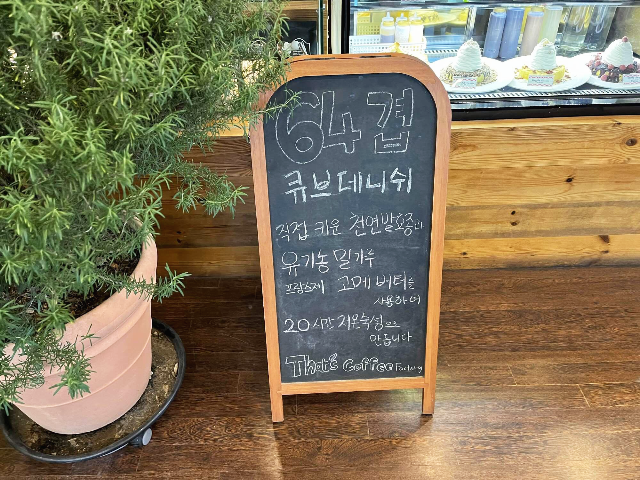 64겹
큐브데니쉬
직접 키운 천연발효종과
유기농 밀가루
프랑스제 고메 버터를
사용하여
20시간 저온숙성으로
만듭니다
That's Coffee Factory